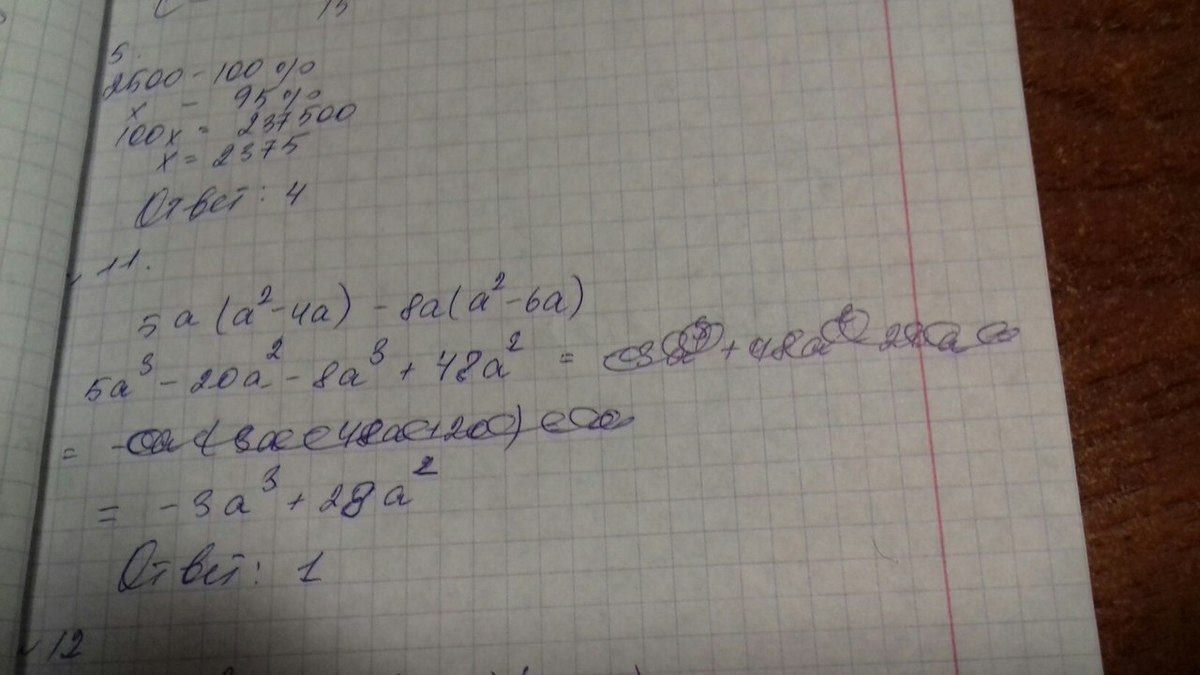 5.
2500 - 100 %
x - 95 %
100x = 237500
x = 2375
Ответ: 4
11.
5a (a² - 4a) - 8a (a² - 6a)
5a³ - 20a² - 8a³ + 48a² =
=
= - 3a³ + 28a²
Ответ: 1
12